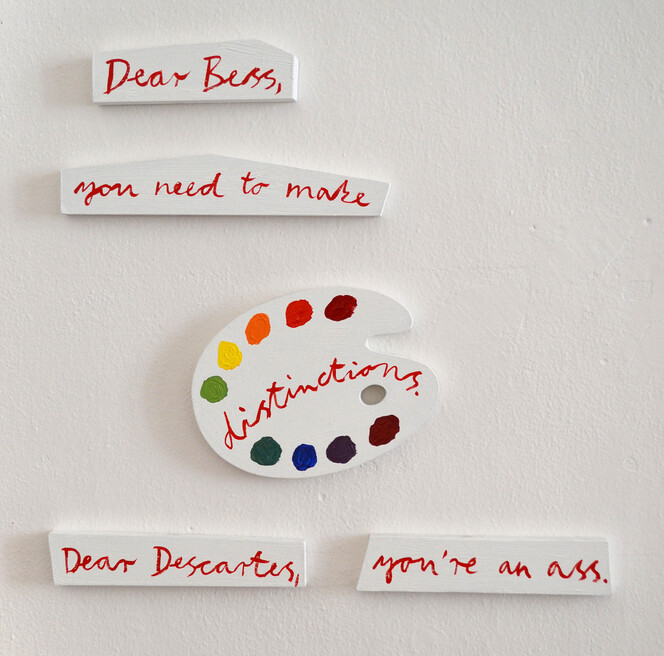 Dear Bess,
you need to make
distinctions.
Dear Descartes,
you're an ass.